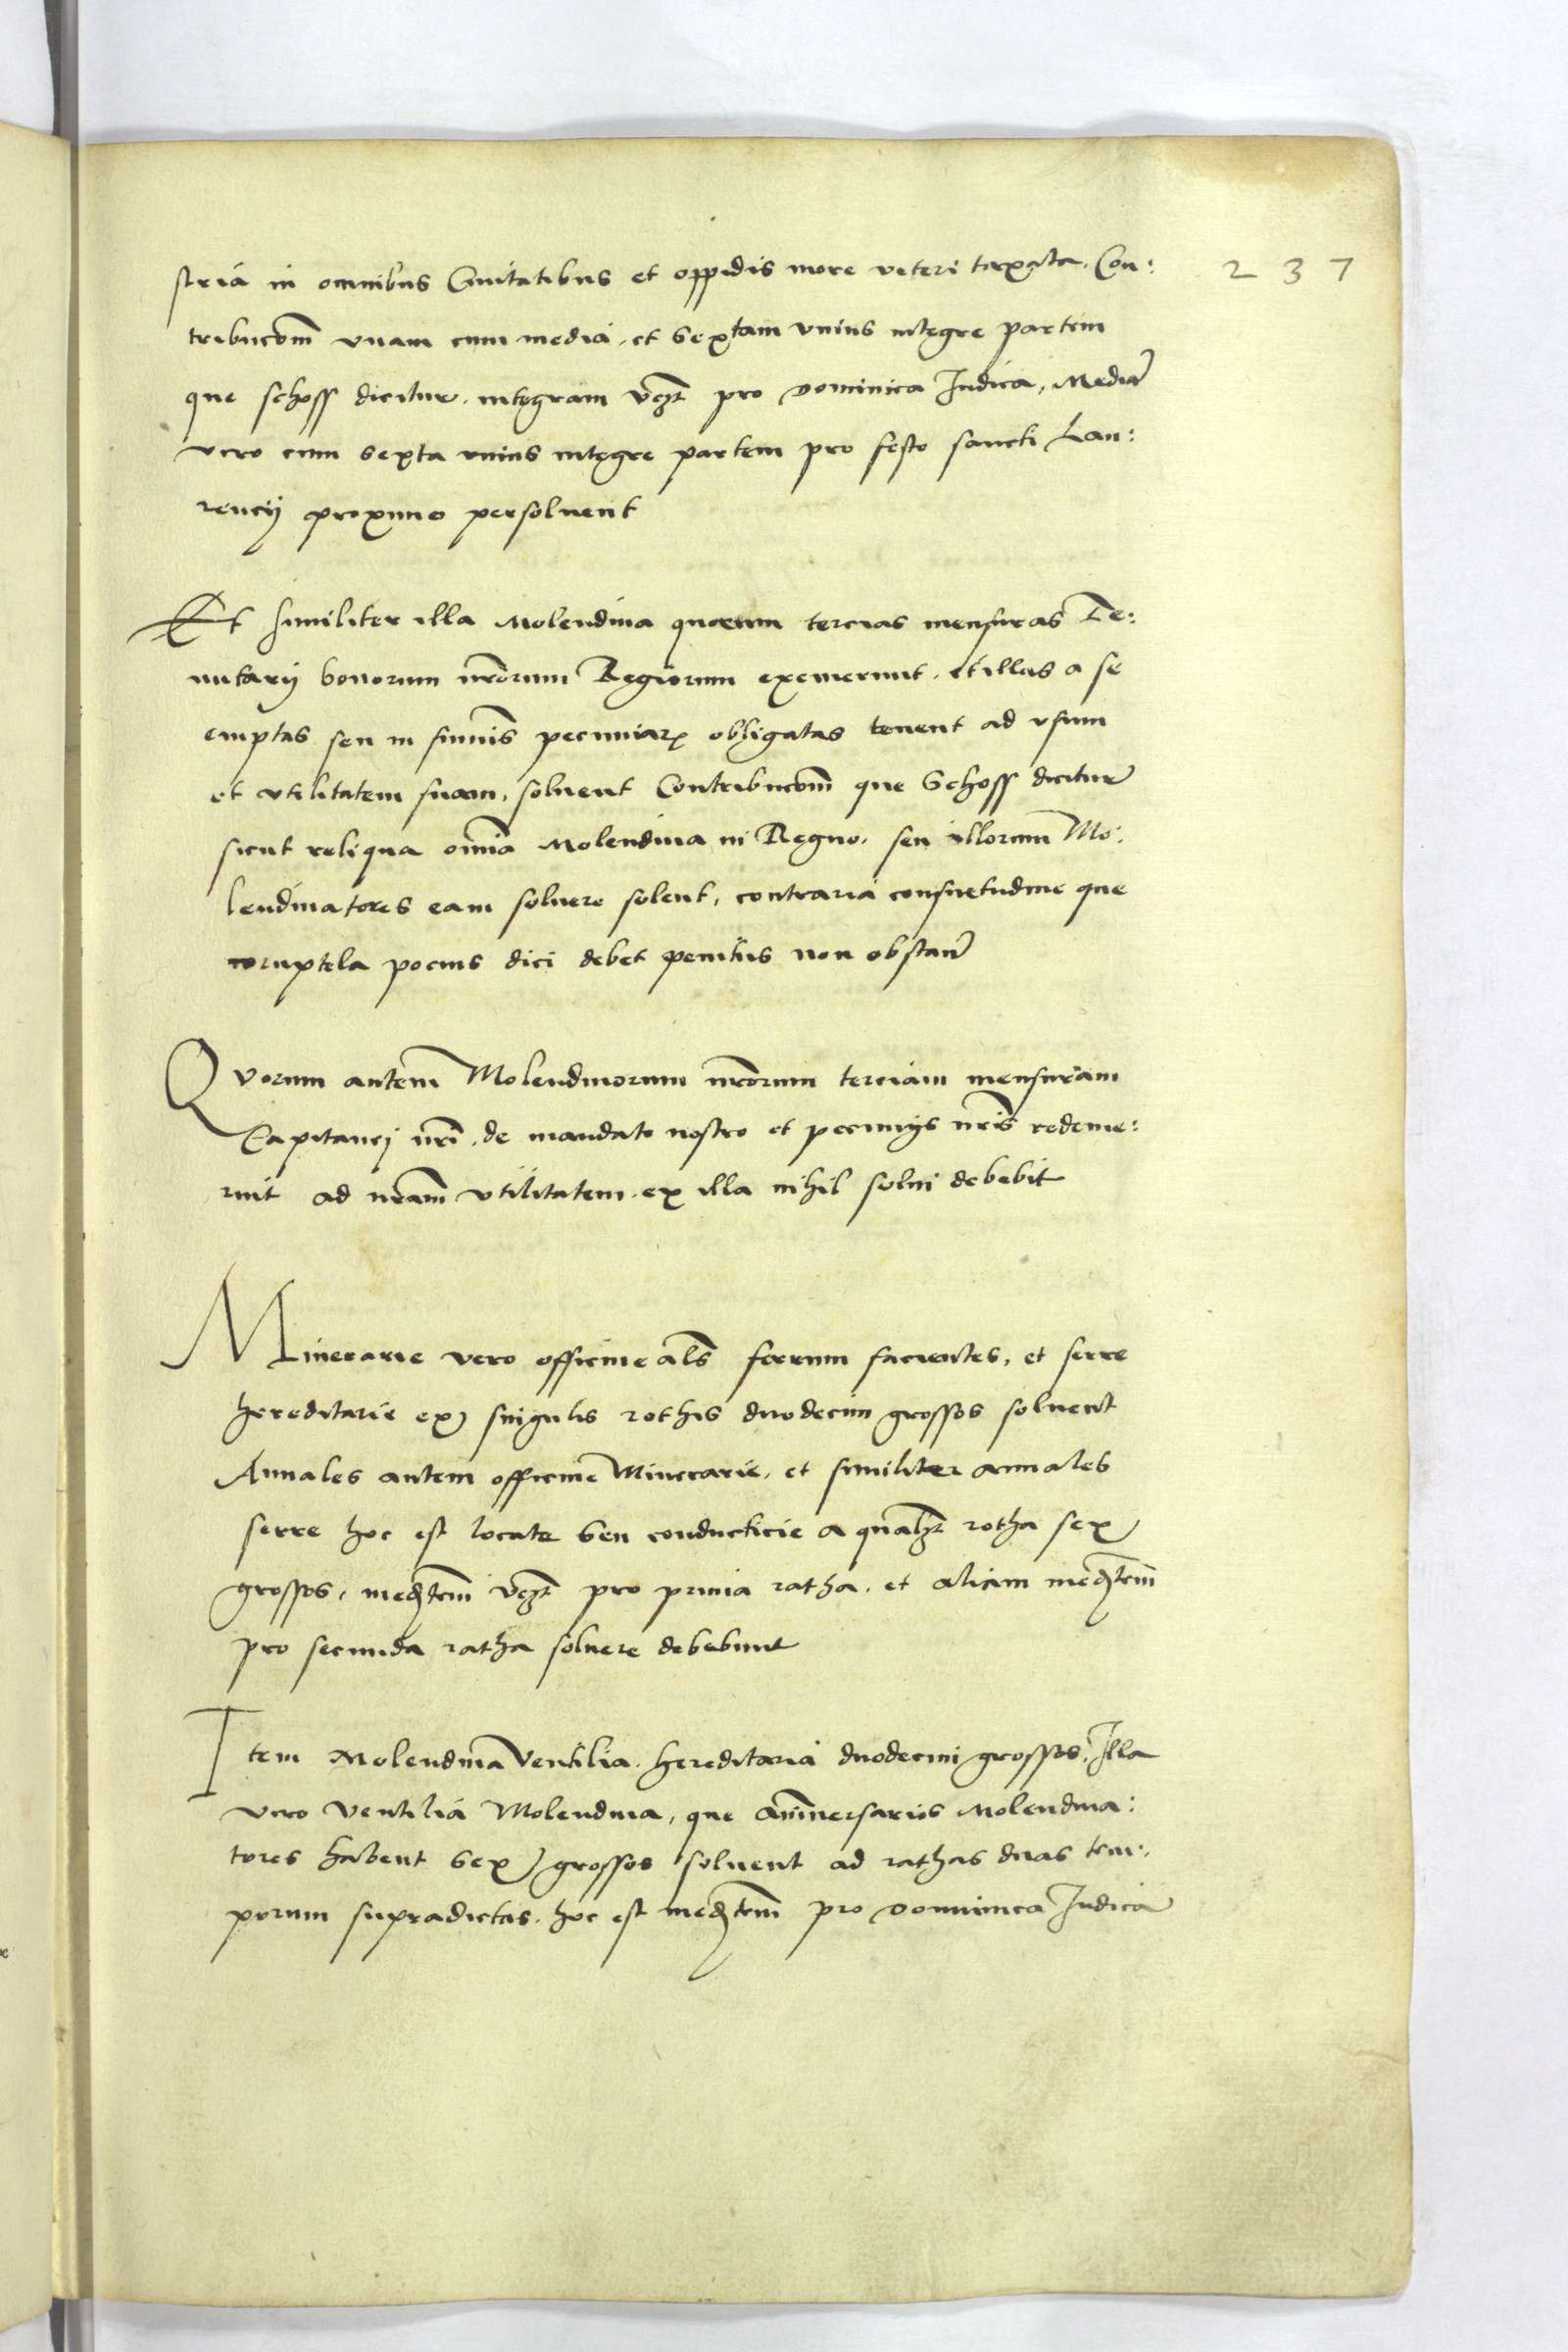 stria in omnibus Ciuitatibus et oppidis more veteri taxata. Con: 237
tribucõm vnam cum media, et Sextam vnius integre partem
que schoss dicitur. integram vczt pro Dominica Iudica, Mediã
vero cum sexta vnius integre partem pro festo sancti Lau:
rencij proximo persoluent
Et similiter illa Molendina quorum tercias mensuras Te:
nutarij bonorum nrorum Regiorum exemerunt. et illas a se
emptas seu in sumis pecuniarꝝ obligatas tenent ad vsum
et vtilitatem suam, soluent Contribucõm que Schoss dicitur
sicut reliqua omia Molendina in Regno, seu illorum Mo:
lendinatores eam soluere solent, contraria consuetudine que
coruptela pocius dici debet penitus non obstan
Quorum autem Molendinorum nrorum terciam mensuram
Capitanej nri, de mandato nostro et pecunijs nris redeme:
runt ad nram vtilitatem. ex illa nihil solui debebit
Minerarie vero officine als ferrum facientes, et serre
hereditarie ex singulis rothis duodecim grossos soluent
Annales autem officine Minerarie, et similiter annales
serre hoc est locate Seu conducticie a qualzt rotha sex
grossos, medtem vczt pro prima ratha, et aliam medtem
pro secunda ratha soluere debebunt
Item Molendina Ventilia. hereditaria duodecim grossos, Illa
vero Ventilia Molendina, que anniuersarios Molendina:
tores habent Sex grossos soluent ad rathas duas tem:
porum supradictas. hoc est medtem pro Dominica Iudica